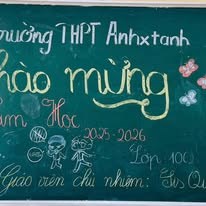 Trường THPT Anhxtanh
Chào mừng
Năm Học
2025-2026
Lớp: 10
Giáo viên chủ nhiệm: